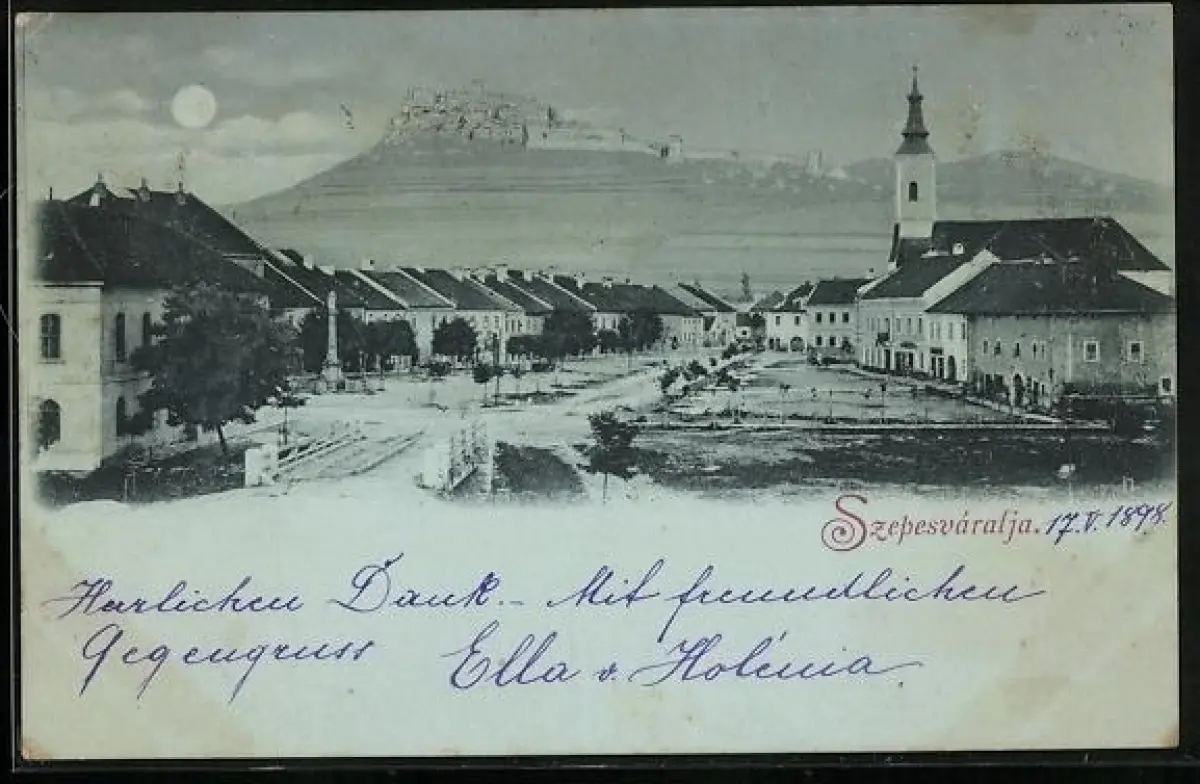 Szepesváralja. 17.V.1898.
Harlichen Dank. – Mit freundlichen
Gegengruss Ella v. Holénia